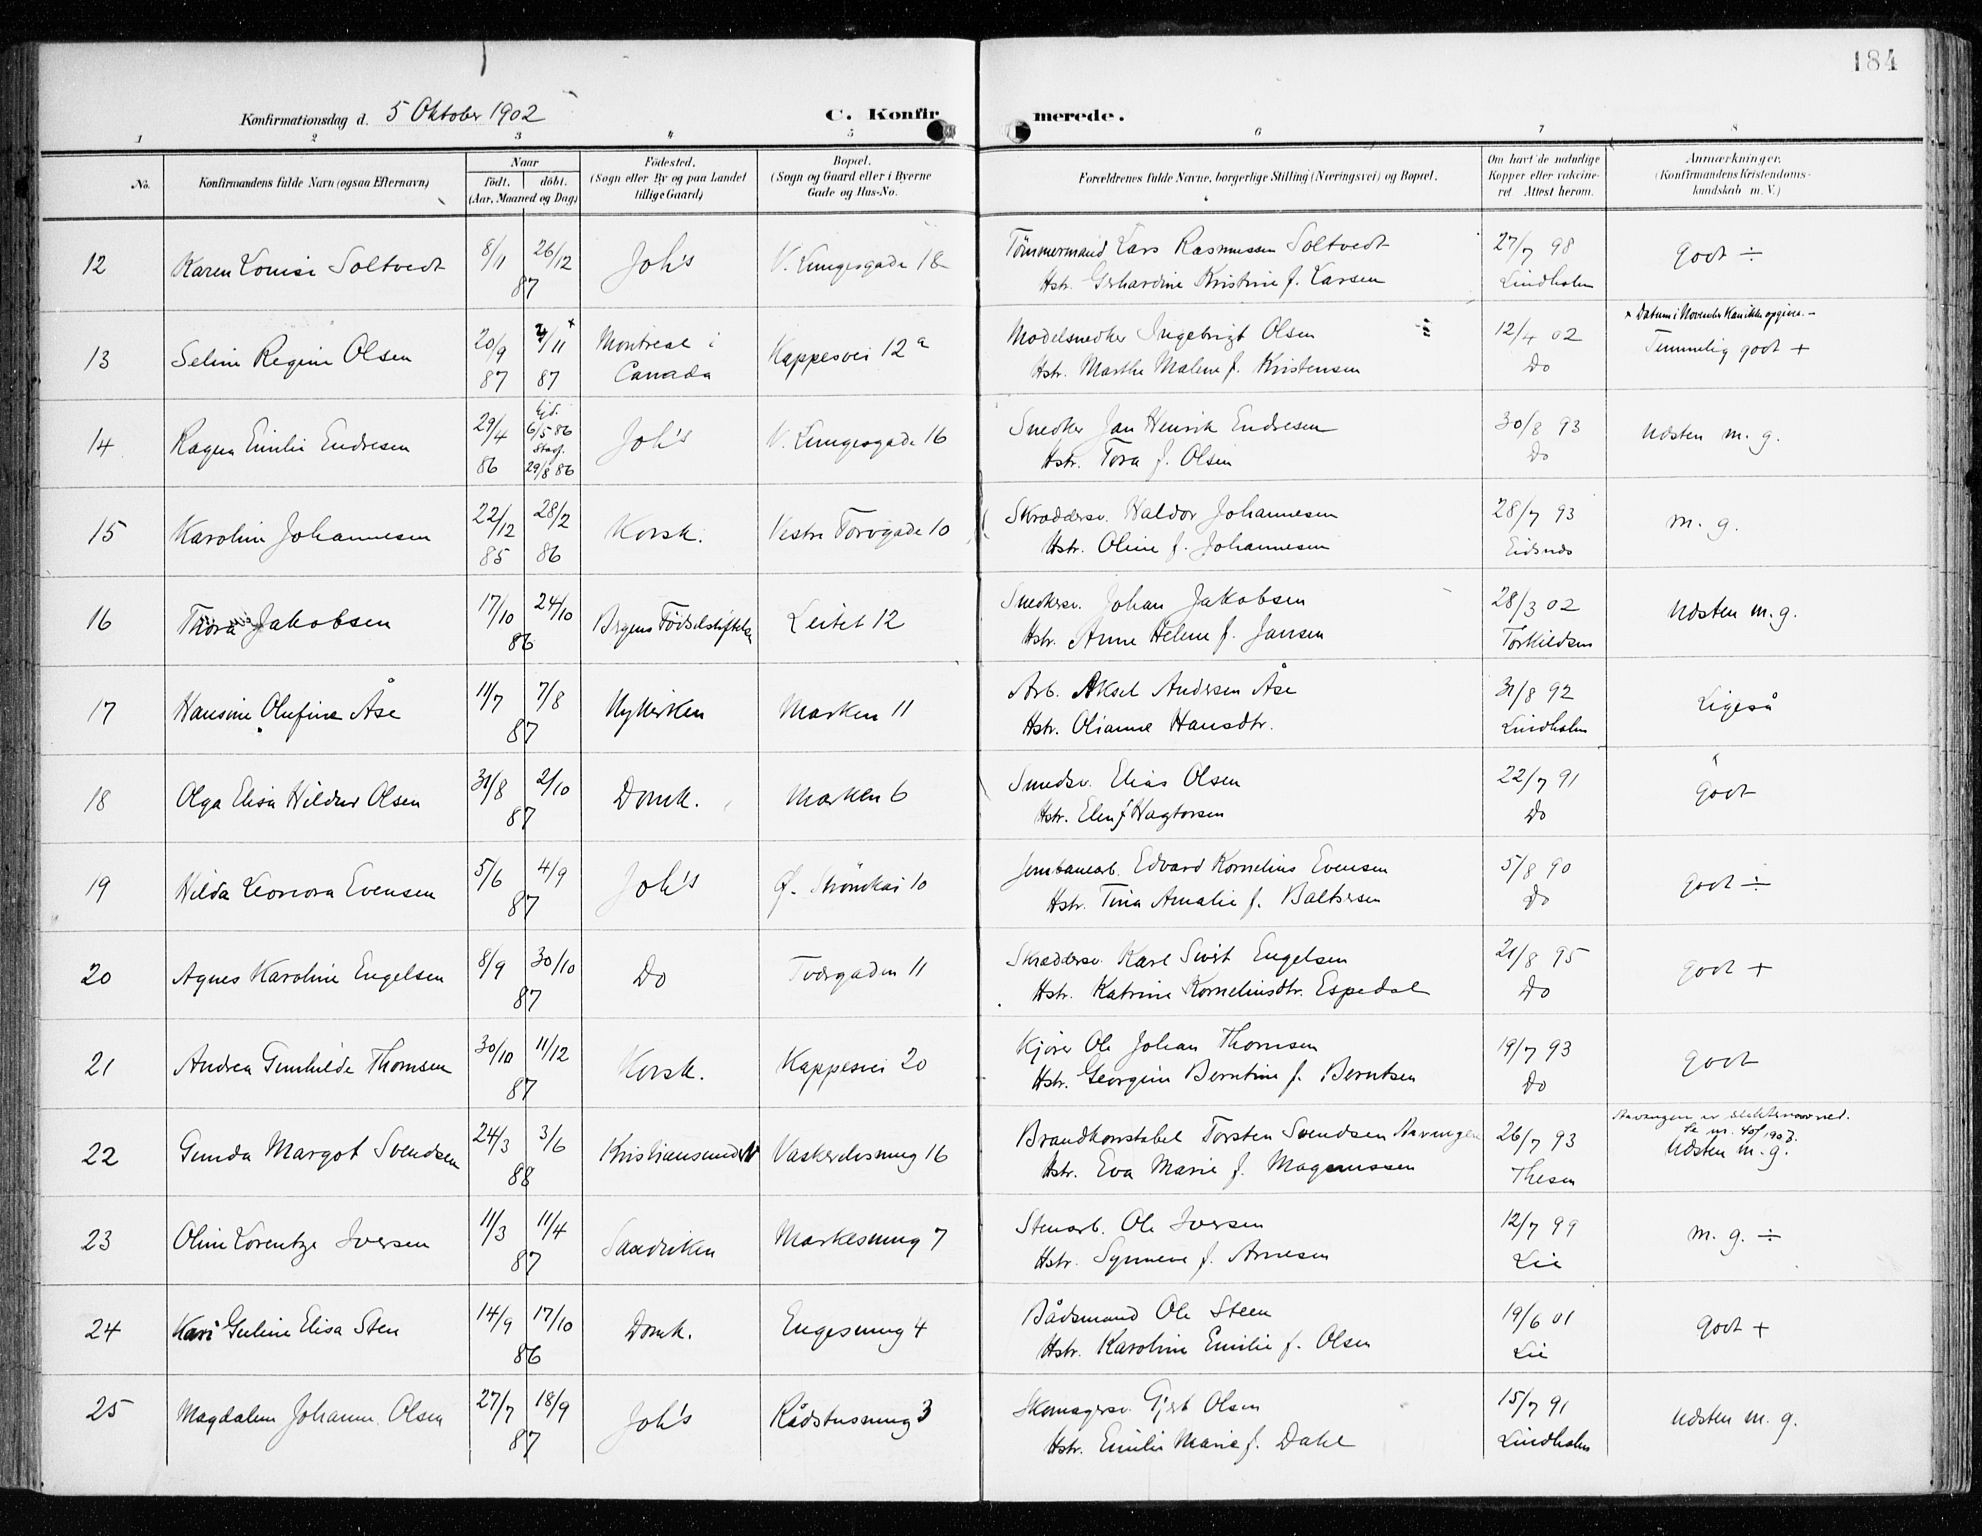 184
Konfirmationsdag d. 5 Oktober 1902
C. Konfir
merede.
1 2 3 4 5 6 7 8
No. Konfirmandens fulde Navn (ogsaa Efternavn)
Naar
födt. döbt.
(Aar, Maaned og Dag)
Födested.
(Sogn eller By og paa Landet
tillige Gaard)
Bopæl.
(Sogn og Gaard eller i Byerne
Gade og Hus-No.
Forældrenes fulde Navne, borgerlige Stilling (Næringsvei) og Bopæl.
Om havt de naturlige
Kopper eller vakcine-
ret. Attest herom.
Anmærkninger.
(Konfirmandens Kristendoms-
kundskab m. V.)
12 Karen Louise Soltvedt 8/11 26/12 87 Joh's V. Lungesgade 18 Tömmermand Lars Rasmussen Soltvedt 27/7 98 godt ÷
Hstr. Gerhardine Kristine f. Larsen Lindholm
× Datum i November kan ikke opgives. –
13 Seline Regine Olsen 20/9 87 /11 × 87 Montreal i Canada Kappesvei 12a Modelsnedker Ingebrigt Olsen 12/4 02 Temmelig godt +
Hstr. Marthe Malene f. Kristensen Do
14 Ragna Emilie Endresen 29/4 86 Hjd. 6/5 86 Stadf. 29/8 86 Joh's V. Lungesgade 16 Snedker Jan Henrik Endresen 30/8 93 Næsten m. g.
Hstr. Tora f. Olsen Do
15 Karoline Johannesen 22/12 85 28/2 86 Korsk. Vestre Torvgade 10 Skræddersv. Haldor Johannesen 28/7 93 m. g.
Hstr. Oline f. Johannesen Eidsnes
16 Thora Jakobsen 17/10 24/10 86 Brgens Födselsstiftelse Leitet 12 Snedkersv. Johan Jakobsen 28/3 02 Næsten m. g.
Hstr. Anne Helene f. Jansen Torkildsen
17 Hansine Olufine Åse 11/7 7/8 87 Nykirken Marken 11 Arb. Aksel Andersen Åse 31/8 92 Ligeså
Hstr. Olianne Hansdtr. Lindholm
18 Olga Elisa Hildur Olsen 31/8 2/10 87 Domk. Marken 6 Smedsv. Elias Olsen 22/7 91 godt
Hstr. Elen f Hagtorsen Do
19 Hilda Leonora Evensen 5/6 4/9 87 Joh's Ø. Strömkai 10 Jernbanearb. Edvard Kornelius Evensen 5/8 90 godt ÷
Hstr. Tina Amalie f. Baltsersen Do
20 Agnes Karoline Engelsen 8/9 30/10 87 Do Tværgaden 11 Skræddersv. Karl Sivert Engelsen 21/8 95 godt +
Hstr. Katrine Korneliusdtr. Espedal Do
21 Andrea Gunhilde Thomsen 30/10 11/12 87 Korsk. Kappesvei 20 Kjører Ole Johan Thomsen 19/7 93 godt
Hstr. Georgine Berntine f. Berntsen Do
Aavangen er slektsnavnet.
Se nr. 40/1907.
22 Gunda Margot Svendsen 24/3 3/6 88 Kristiansund N Vaskerelvsmug 16 Brandkonstabel Torsten Svendsen Aavangen 26/7 93 Næsten m. g.
Hstr. Eva Marie f. Magnussen Thesen
23 Oline Lorentze Iversen 11/3 11/4 87 Sandviken Markesmug 7 Stenarb. Ole Iversen 12/7 99 m. g. ÷
Hstr. Synneve f. Arnesen Lie
24 Kari Guline Elisa Sten 14/9 17/10 86 Domk. Engesmug 4 Bådsmand Ole Steen 19/6 01 godt +
Hstr. Karoline Emilie f. Olsen Lie
25 Magdalene Johanne Olsen 27/7 18/9 87 Joh's Rådstusmug 3 Skomagersv. Gjert Olsen 15/7 91 Næsten m. g.
Hstr. Emilie Marie f. Dahl Lindholm